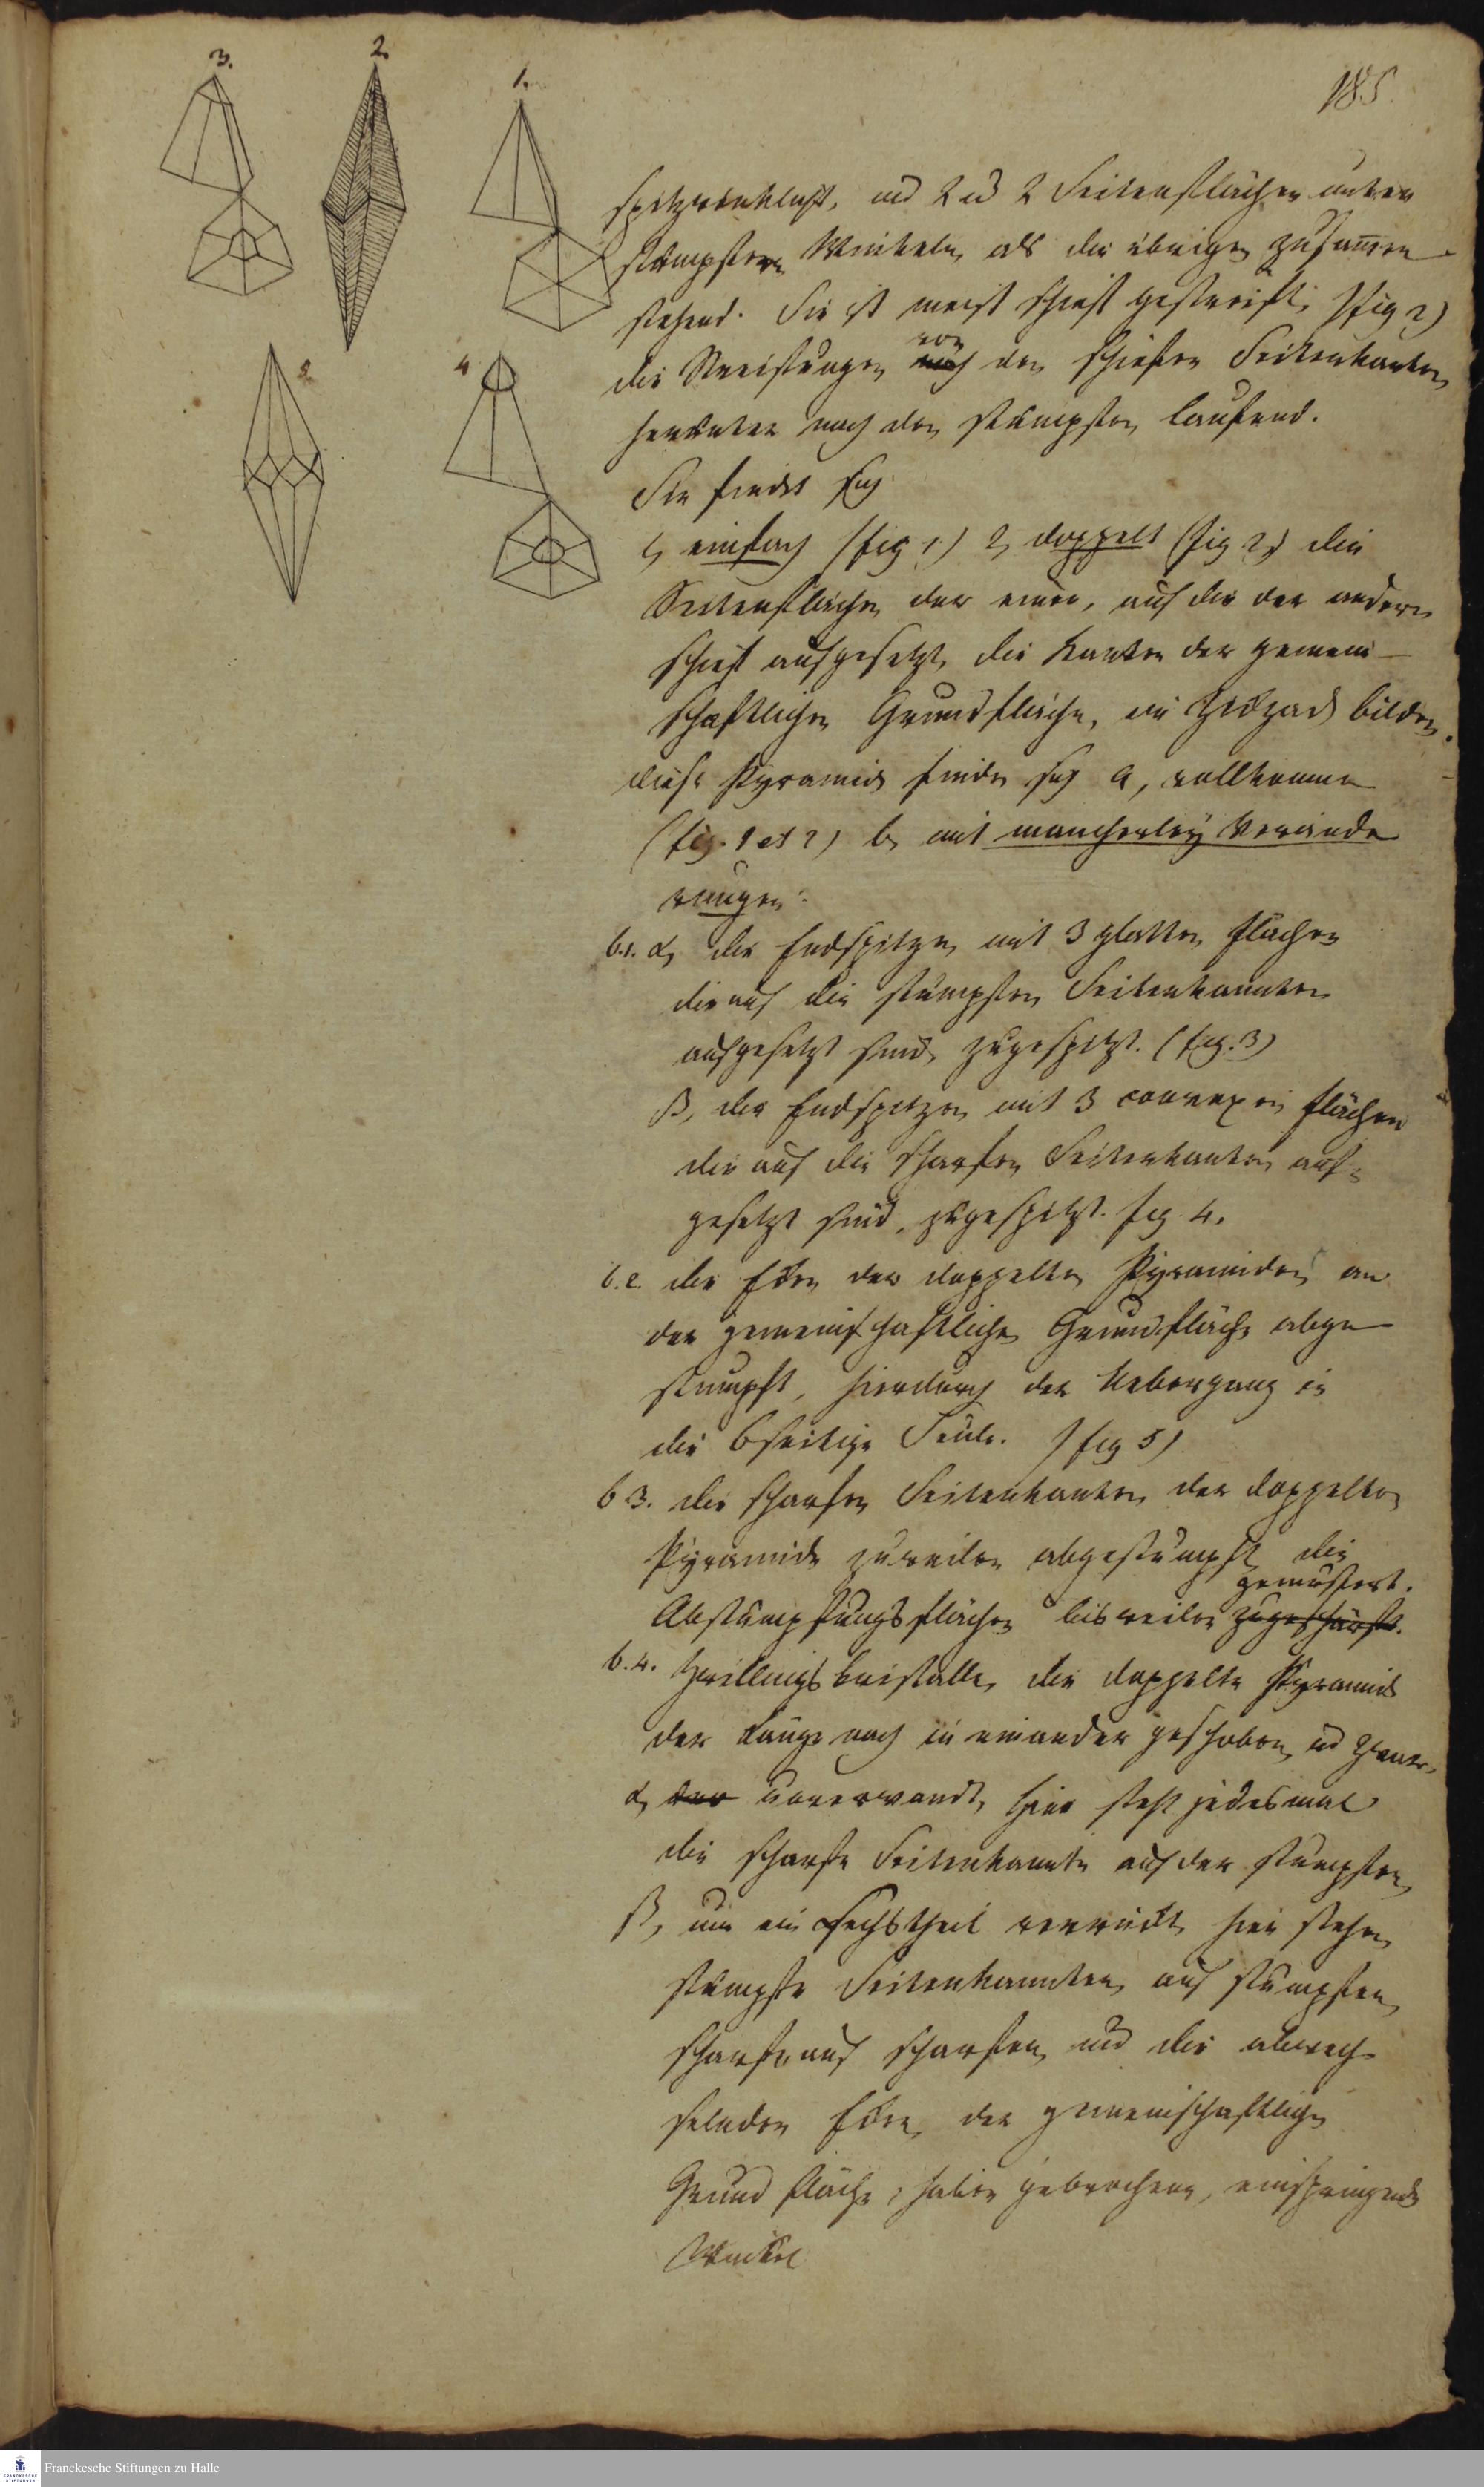 3.
2.
1.
4
5.
185.
spitzwinklicht, und 2 und 2 Seitenflächen unter
stumpfern Winkeln, als die übrigen zusam̅en
stehend. Sie ist meist schief gestreift (fig 2)
die Streifungen von den schiefen Seitenkanten
herunter nach den stumpfen laufend.
Sie findet sich
1, einfach (fig 1) 2, doppelt (fig 2,) die
Seitenflächen der einen, auf die der andern
schief aufgesetzt, die Kanten der gemein-
schaftlichen Grundfläche, ein Zickzack bilden.
diese Pyramide findet sich a, vollkommen
(fig. 1 et 2) b, mit mancherley Verände
rungen:
b.1. α, die Endspitzen mit 3 glatten flächen
die auf die stumpfen Seitenkannten
aufgesetzt sind, zugespitzt. (fig. 3)
β, die Endspitzen mit 3 convexen flächen
die auf die scharfen Seitenkanten auf-
gesetzt sind, zugespitzt. fig. 4.
b.2. die Ecken der doppelten Pyramiden an
der gemeinschaftlichen Grundfläche abge
stumpft, hierdurch der Uebergang in
die 6seitige Säule. (fig 5)
b 3. die scharfen Seitenkanten der doppelten
Pyramide zuweilen abgestumpft die
gemustert.
Abstumpfungsflächen bisweilen zugeschärft.
b.4. Zwillingskristalle, die doppelte Pyramide
der Länge nach in einander geschoben und zwar.
α, der unverwandt, hier steht jedesmal
die scharfe Seitenkannte auf der stumpfen,
β, um ein Sechstheil verrückt, hier stehen
stumpfe Seitenkannten, auf stumpfen,
scharfe, auf scharfen, und die abwech-
selnden Ecken, der gemeinschaftlichen
Grund fläche, haben gebrochene, einspringende
Winkel
Franckesche Stiftungen zu Halle